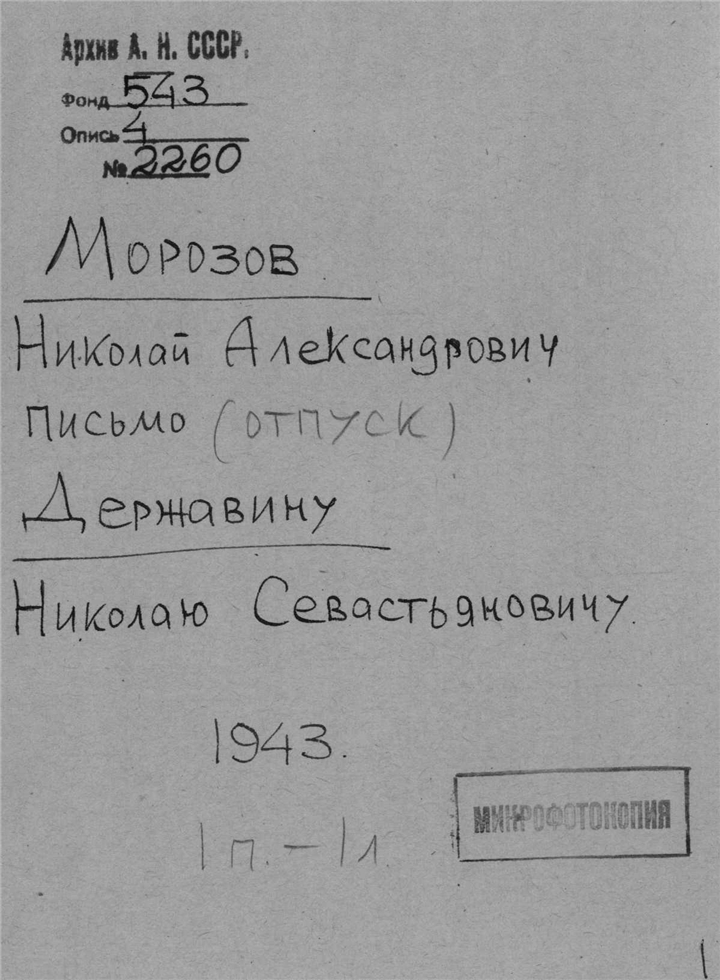 Архив А. Н. СССР.
Фонд 543
Опись 4
№ 2260
Морозов
Николай Александрович
письмо (отпуск)
Державину
Николаю Севастьяновичу.
1943.
1 п. – 1 л.
МИКРОФОТОКОПИЯ
1